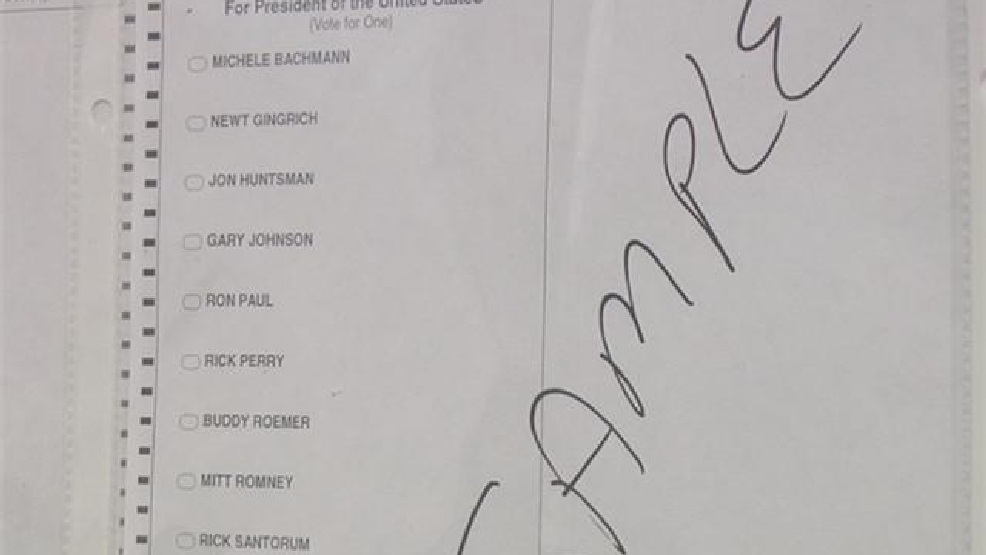 For President of the United States
(Vote for One)
MICHELE BACHMANN
NEWT GINGRICH
JON HUNTSMAN
GARY JOHNSON
RON PAUL
RICK PERRY
BUDDY ROEMER
MITT ROMNEY
RICK SANTORUM
SAMPLE